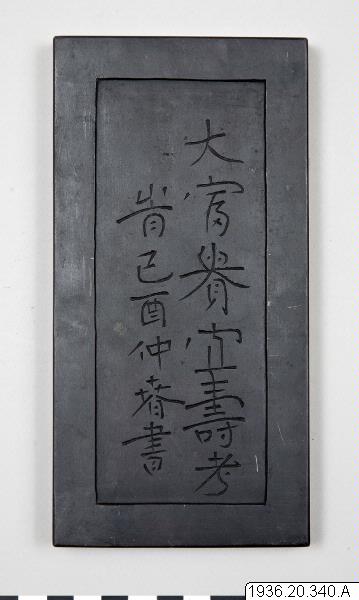 大富貴宜壽考
峕己酉仲春書
1936.20.340.A